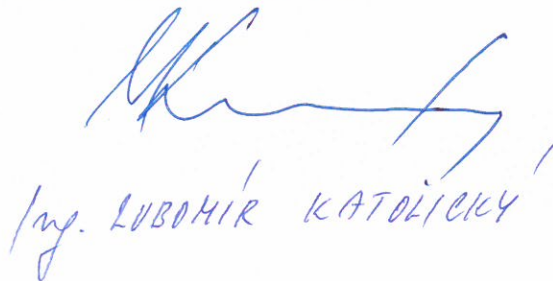 Ing. LUBOMÍR KATOLICKÝ